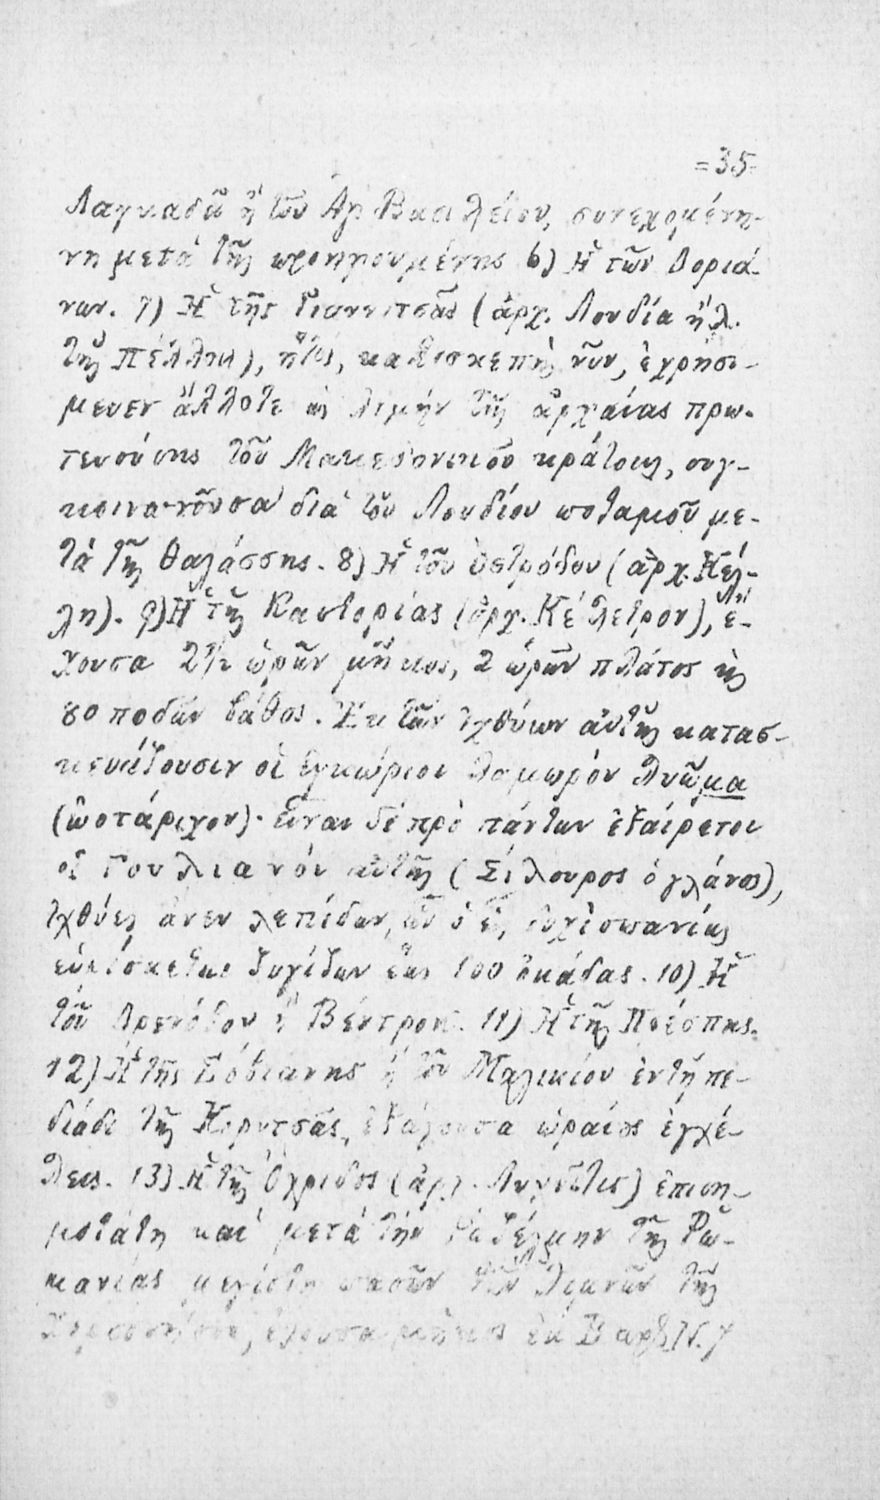 =35=
Λαγκαδᾶ ἢ τοῦ Ἁγ. Βασιλείου, συνεχομέ-
νη μετὰ τῆς προηγουμένης 6) Ἡ τῶν Δοριά-
νων. 7) Ἡ τῆς Γιαννιτσᾶς (ἀρχ. Λουδία ἢ λ.
τῆς Πέλλης), ἥτις, καίτοι σκεπὴ νῦν, ἐχρησί-
μευεν ἄλλοτε ὡς λιμὴν τῆς ἀρχαίας πρω-
τευούσης τοῦ Μακεδονικοῦ κράτους, συγ-
κοινωνοῦσα διὰ τοῦ Λουδίου ποταμοῦ με-
τὰ τῆς θαλάσσης. 8) Ἡ τοῦ Ὀστρόβου (ἀρχ. Κέλ-
λη). 9) Ἡ τῆς Καστορίας (ἀρχ. Κέλετρον), ἔ-
χουσα 2½ ὡρῶν μῆκος, 2 ὡρῶν πλάτος κὴ
80 ποδῶν βάθος. Ἐκ τῶν ἰχθύων αὐτῆς κατασ-
κευάζουσιν οἱ ἐγχώριοι λαμπρὸν λνῶμα
(ὠοτάριχον)· εἶναι δὲ πρὸ πάντων ἐξαίρετοι
οἱ Γουλιανοὶ αὐτῆς (Σίλουρος ὁ γλάνος),
ἰχθύες ἄνευ λεπίδων, ὧν ὁ εἷς, οὐχὶ σπανίως
εὑρίσκεται ζυγίζων ἕως 100 ὀκάδας. 10) Ἡ
τοῦ Δρενόβου ἢ Βέντροκ. 11) Ἡ τῆς Πρέσπης.
12) Ἡ τῆς Σόβιανης ἢ τοῦ Μαλικίου ἐν τῇ πε-
διάδι τῆς Κορυτσᾶς, ἐξάγουσα ὡραίας ἐγχέ-
λεις. 13) Ἡ τῆς Ὀχρίδος (ἀρχ. Λυχνῖτις) ἐπιση-
μοτάτη καὶ μετὰ τὴν Ῥαζέλμην τῆς Ῥω-
μανίας μεγίστη πασῶν τῶν λιμνῶν τῆς
Χερσονήσου, ἔχουσα μῆκος ἐκ Β πρὸς Ν. 7